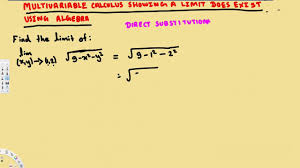 MULTIVARIABLE CALCULUS SHOWING A LIMIT DOES EXIST
USING ALGEBRA
DIRECT SUBSTITUTION
Find the limit of:
lim (x,y)→(1,2) √9-x²-y² = √9-1²-2²
= √